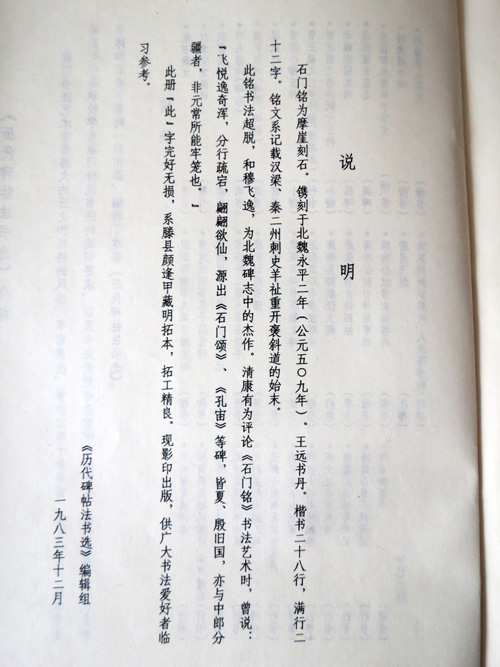 说明
石门铭为摩崖刻石。镌刻于北魏永平二年（公元五〇九年）。王远书丹。楷书二十八行，满行二
十二字。铭文系记载汉梁、秦二州刺史羊祉重开褒斜道的始末。
此铭书法超脱，和穆飞逸，为北魏碑志中的杰作。清康有为评论《石门铭》书法艺术时，曾说：
“飞悦逸奇浑，分行疏宕，翩翩欲仙，源出《石门颂》、《孔宙》等碑，皆夏、殷旧国，亦与中郎分
疆者，非元常所能牢笼也。”
此册“此”字完好无损，系滕县颜逢甲藏明拓本，拓工精良。现影印出版，供广大书法爱好者临
习参考。
《历代碑帖法书选》编辑组
一九八三年十二月